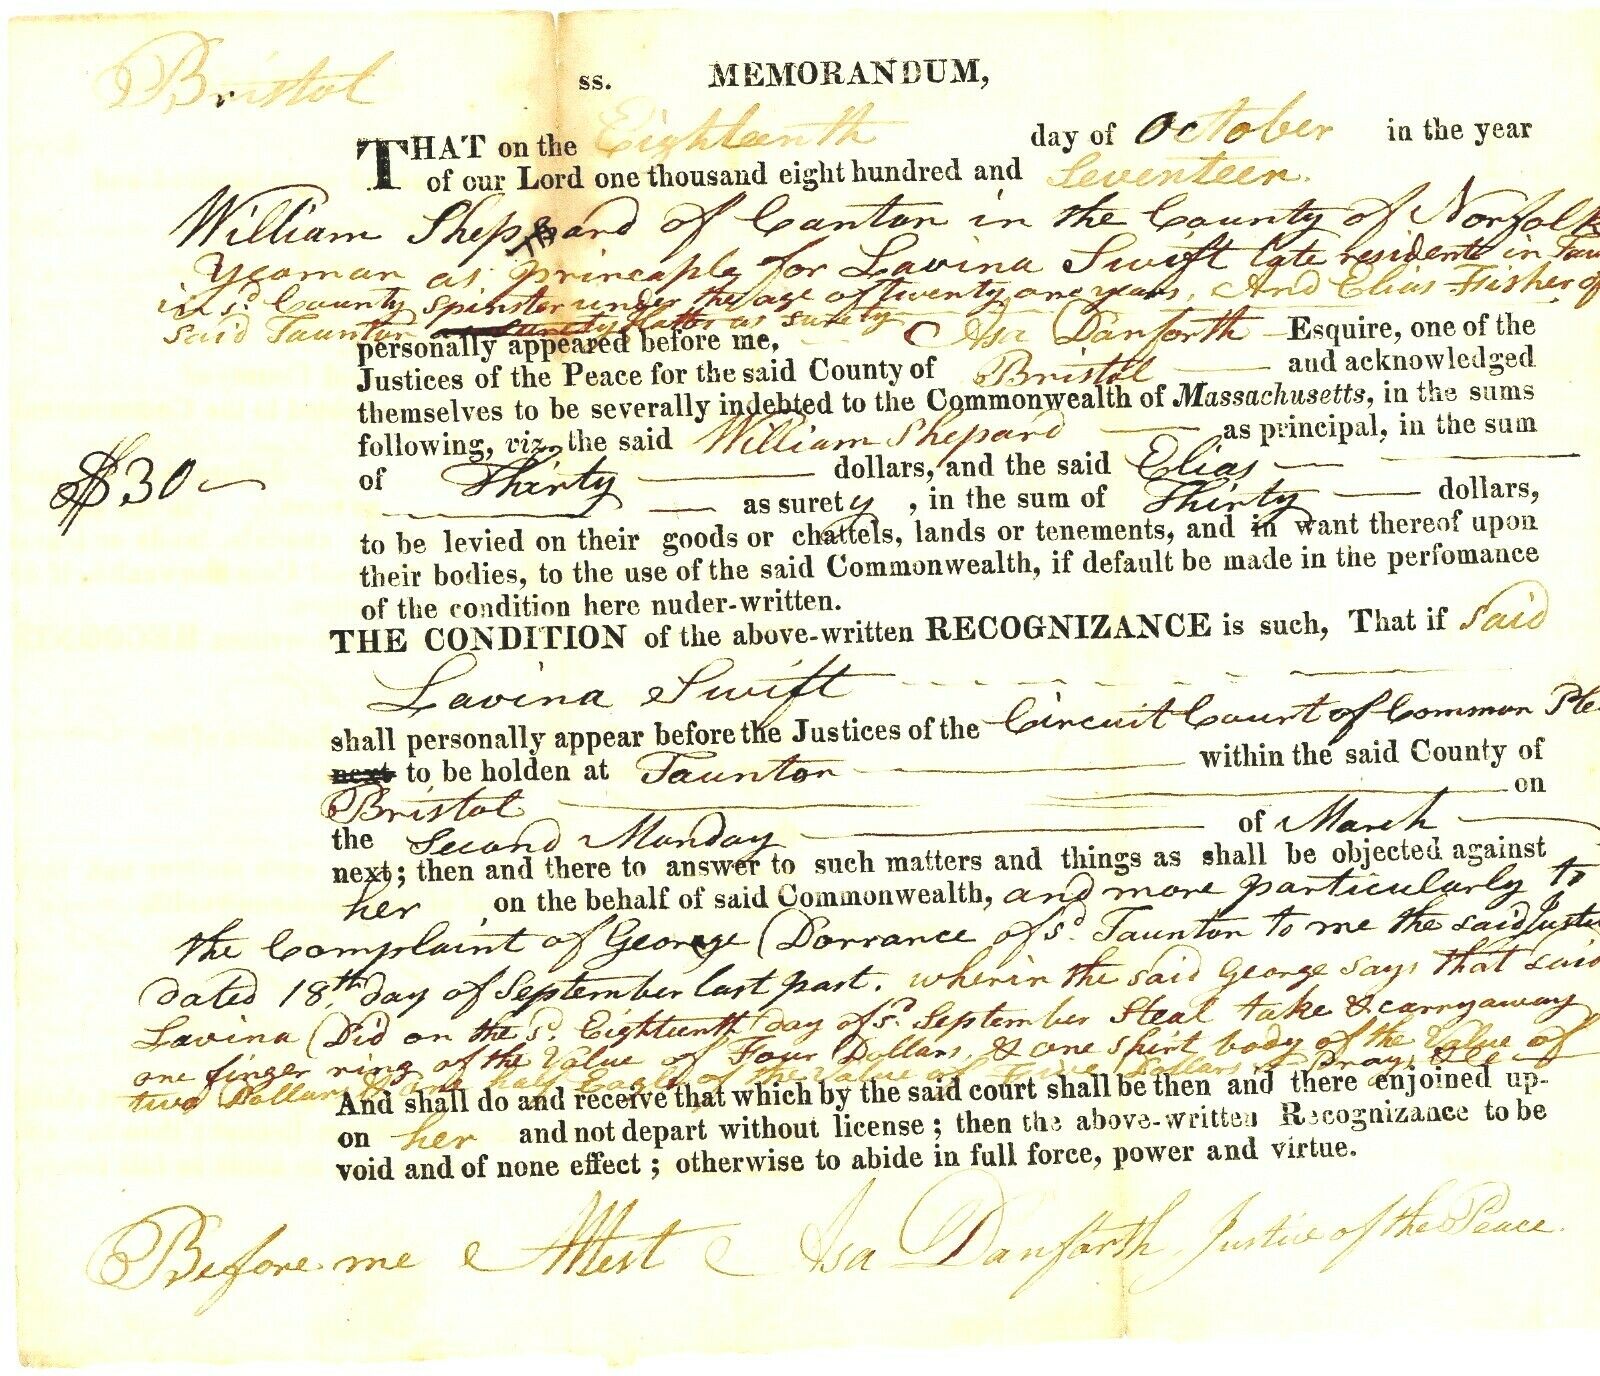 Bristol ss. MEMORANDUM,
THAT on the Eighteenth day of October in the year
of our Lord one thousand eight hundred and Seventeen.
William Sheppard of Canton in the County of Norfolk
Yeoman as principle for Lavina Swift late resident in Taun
in sd. County spinster under the age of twenty one years, And Elias Fisher of
said Taunton Hatter as surety Asa Danforth Esquire, one of the
personally appeared before me,
Justices of the Peace for the said County of Bristol and acknowledged
themselves to be severally indebted to the Commonwealth of Massachusetts, in the sums
following, viz, the said William Shepard as principal, in the sum
$30
of Thirty dollars, and the said Elias
as surety, in the sum of Thirty dollars,
to be levied on their goods or chattels, lands or tenements, and in want thereof upon
their bodies, to the use of the said Commonwealth, if default be made in the perfomance
of the condition here nuder-written.
THE CONDITION of the above-written RECOGNIZANCE is such, That if said
Lavina Swift
shall personally appear before the Justices of the Circuit Court of Common Ple
next to be holden at Taunton within the said County of
Bristol on
the Second Monday of March
next; then and there to answer to such matters and things as shall be objected against
her on the behalf of said Commonwealth, and more particularly to
the Complaint of George Dorrance of sd. Taunton to me the said Justice
dated 18th, day of September last past. wherin the said George says that said
Lavina Did on the sd. Eighteenth day of sd. September Steal take & carry away
one finger ring of the Value of Four Dollars, & one shirt body of the Value of
two Dollars & one half Eagle of the Value of Five Dollars &
And shall do and receive that which by the said court shall be then and there enjoined up-
on her and not depart without license; then the above-written Recognizance to be
void and of none effect; otherwise to abide in full force, power and virtue.
Before me Attest Asa Danforth, Justice of the Peace.